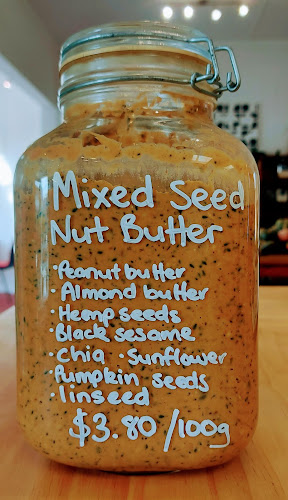 Mixed Seed
Nut Butter
· Peanut butter
· Almond butter
· Hemp seeds
· Black sesame
· Chia · Sunflower
· Pumpkin seeds
· linseed
$3.80 /100g